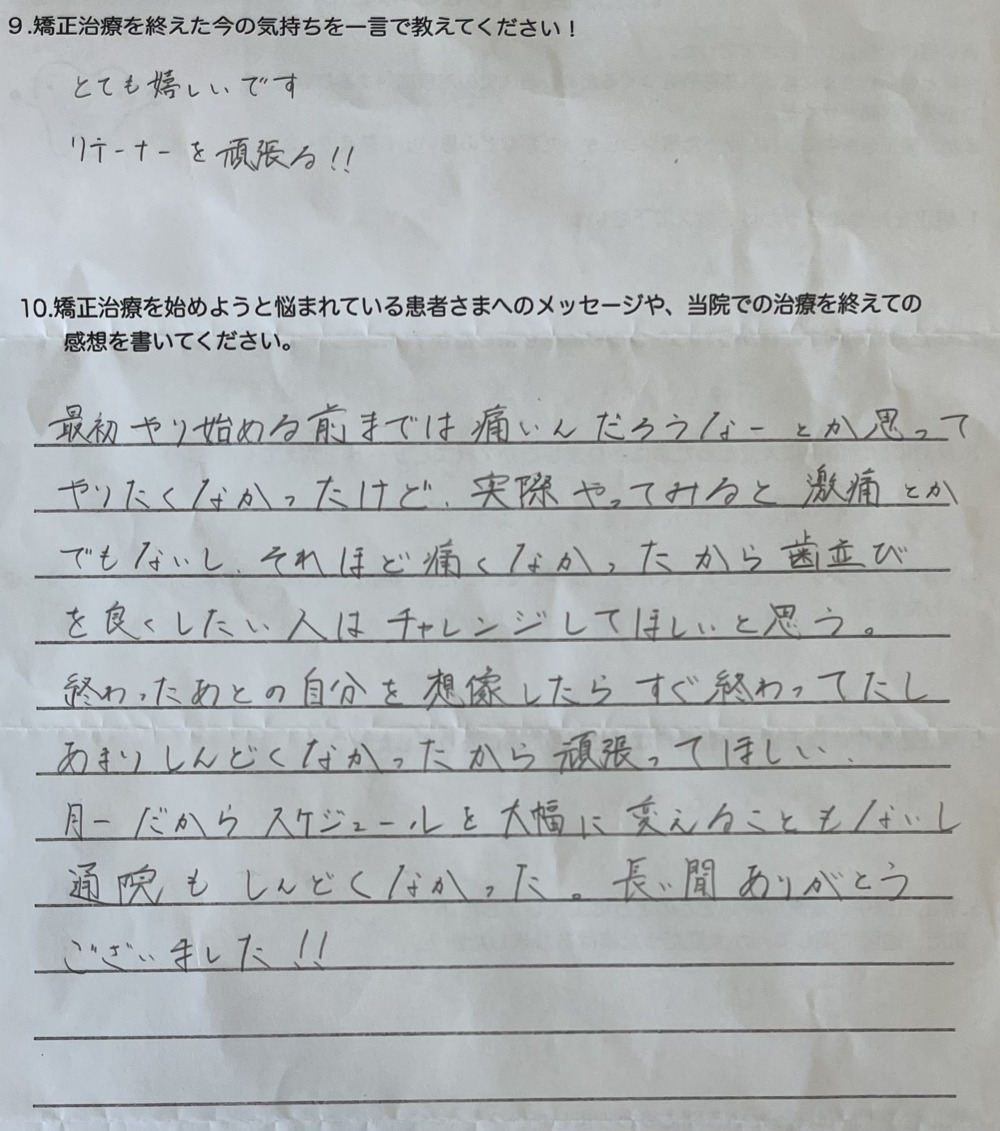 9.矯正治療を終えた今の気持ちを一言で教えてください！
とても嬉しいです
リテーナーを頑張る!!
10.矯正治療を始めようと悩まれている患者さまへのメッセージや、当院での治療を終えての
感想を書いてください。
最初やり始める前までは痛いんだろうなーとか思って
やりたくなかったけど、実際やってみると激痛とか
でもないし、それほど痛くなかったから歯並び
を良くしたい人はチャレンジしてほしいと思う。
終わったあとの自分を想像したらすぐ終わってたし
あまりしんどくなかったから頑張ってほしい、
月一だからスケジュールを大幅に変えることもないし
通院もしんどくなかった。長い間ありがとう
ございました!!